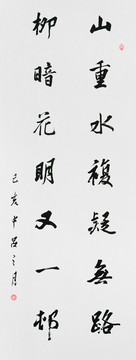 山重水複疑無路
柳暗花明又一邨
己亥中呂之月